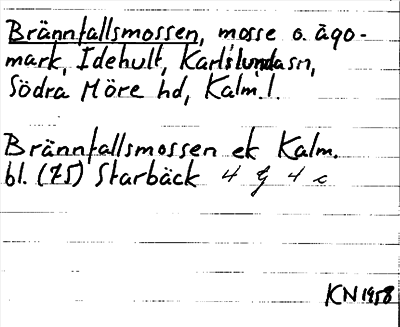 Brännfallsmossen, mosse o. ägo-
mark, Idehult, Karlslundasn,
Södra Möre hd, Kalm.l.
Brännfallsmossen ek Kalm.
bl. (75) Starbäck 4 g 4 c
KN 1958